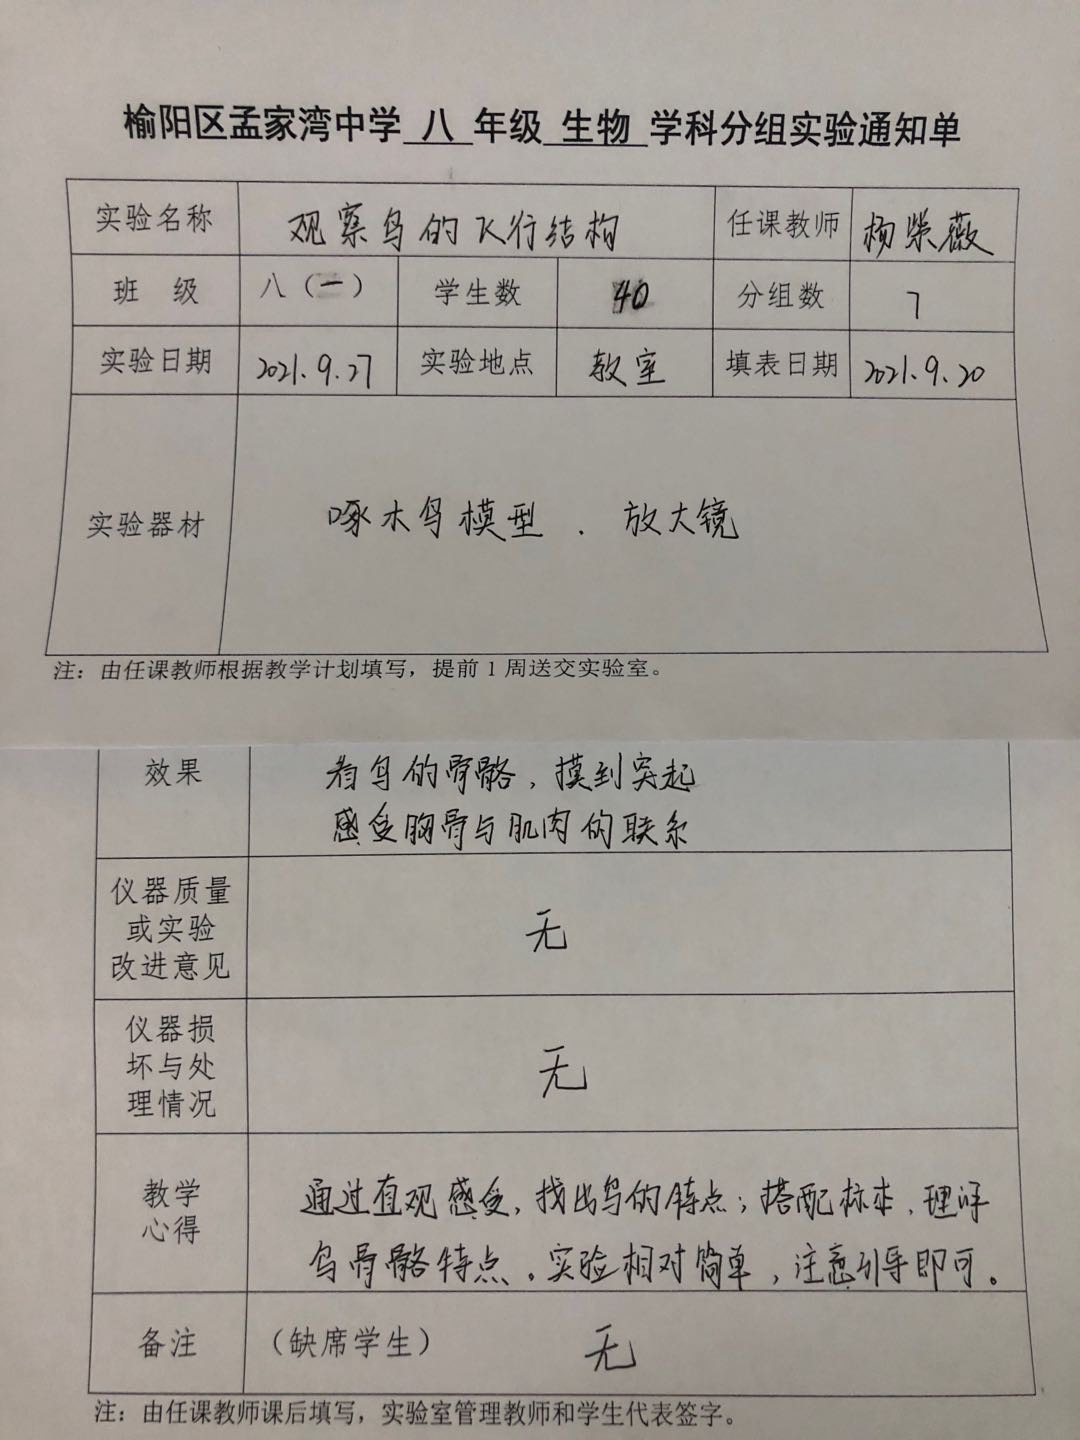 榆阳区孟家湾中学 八 年级 生物 学科分组实验通知单
实验名称 观察鸟的飞行结构 任课教师 杨荣薇
班 级 八（一） 学生数 40 分组数 7
实验日期 2021.9.27 实验地点 教室 填表日期 2021.9.20
实验器材 啄木鸟模型 . 放大镜
注：由任课教师根据教学计划填写，提前1周送交实验室。
效果 看鸟的骨骼，摸到突起
感受胸骨与肌肉的联系
仪器质量
或实验 无
改进意见
仪器损
坏与处 无
理情况
教学 通过直观感受，找出鸟的特点；搭配标本，理解
心得 鸟骨骼特点。实验相对简单，注意引导即可。
备注 （缺席学生） 无
注：由任课教师课后填写，实验室管理教师和学生代表签字。